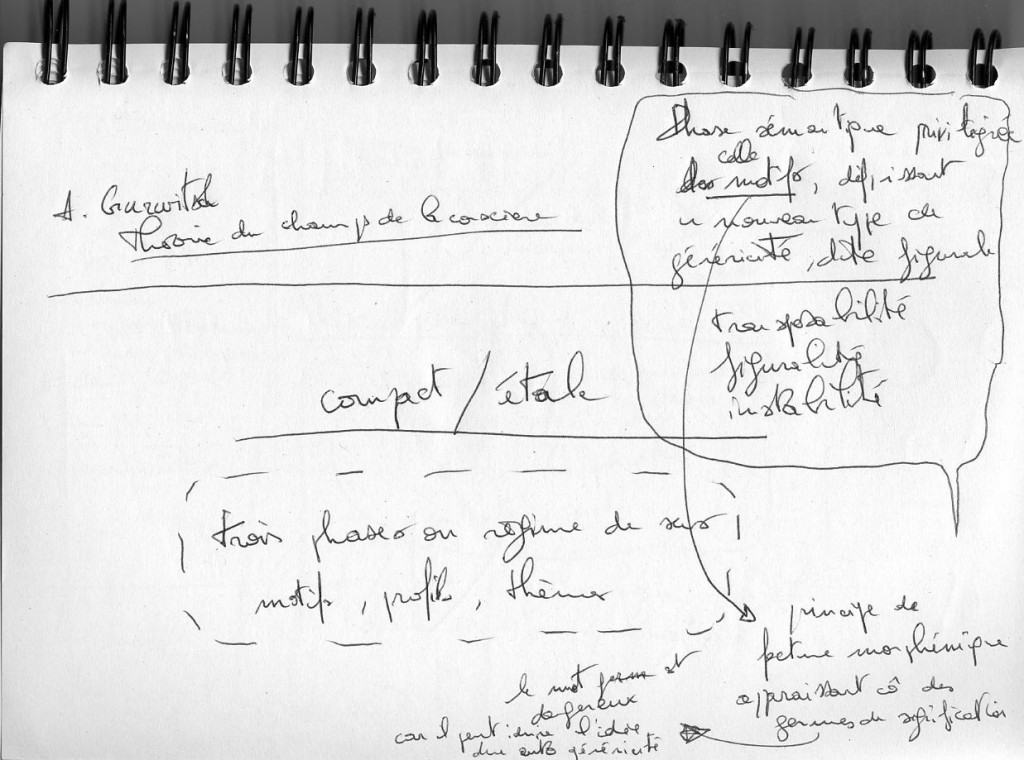 A. Gurwitsch
Théorie du champs de la conscience
compact / étale
trois phases ou régime de sens
motifs, profils, thèmes
Phase sémantique privilégiée
celle
des motifs, définissant
un nouveau type de
généricité, dite figurale
transposabilité
figuralité
instabilité
principe de
facture morphémique
apparaissant cô des
germes de signification
le mot germe est
dangereux
car il peut induire l'idée
d'une auto généricité